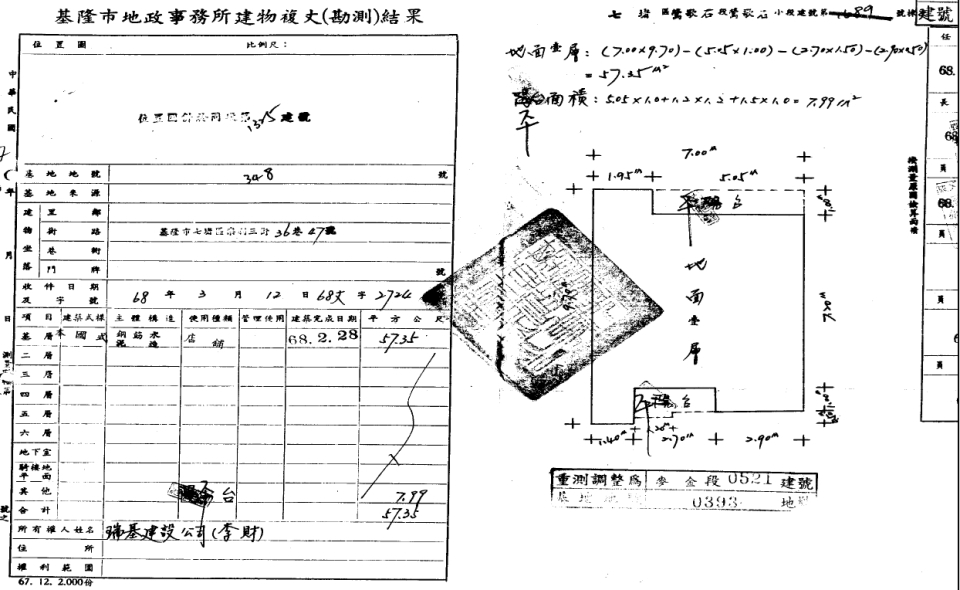 基隆市地政事務所建物複丈(勘測)結果
位置圖
比例尺：
建號
基地地號 348 號
基地來源
建物坐落
鄉
街路
巷衖 36巷47號
門牌 號
收件日期及字號 68年3月12日68丈字2724
項目 建築式樣 主體構造 使用種類 管理使用 建築完成日期 平方公尺
基層 本國式 鋼筋水泥造 店舖 68.2.28 57.35
二層
三層
四層
五層
六層
地下室
騎樓地平面
其他 台 7.99
合計 57.35
所有權人姓名 瑞基建設公司(李財)
住所
權利範圍
67.12.2.000份
中華民國
年
月
日
七堵區鶯歌石段鶯歌石小段建號第1689號
建號
地面壹層：(7.00×9.70)-(5.05×1.00)-(2.70×1.50)-(2.90×0.50)
=57.35m²
面積：5.05×1.0+1.2×1.2+1.5×1.0=7.99m²
7.00m
1.95m 5.05m
平 台
地面壹層
平 台
1.40m 1.20 2.70m 2.90m
重測調整為 麥金段 0521 建號
基地地 0393 地
68.
長
68.